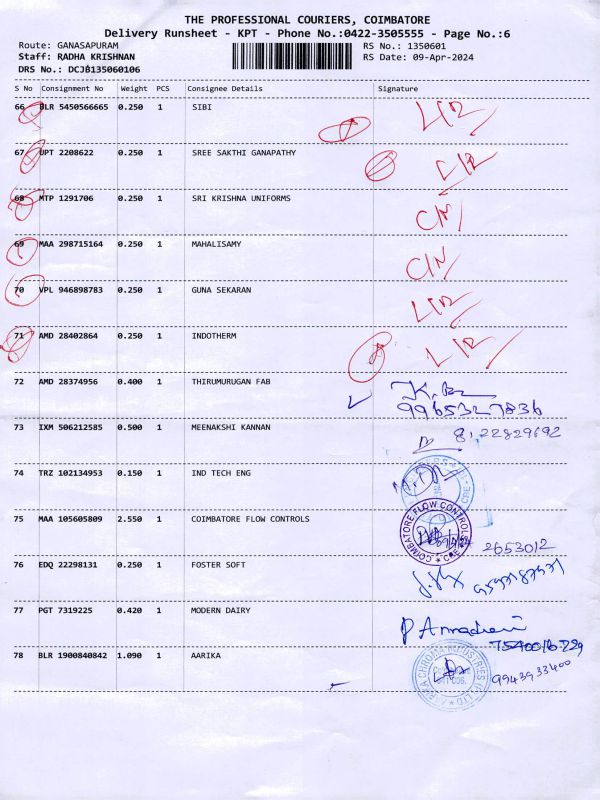 THE PROFESSIONAL COURIERS, COIMBATORE
Delivery Runsheet - KPT - Phone No.:0422-3505555 - Page No.:6
Route: GANASAPURAM RS No.: 1350601
Staff: RADHA KRISHNAN RS Date: 09-Apr-2024
DRS No.: DCJB135060106
S No Consignment No Weight PCS Consignee Details Signature
66 BLR 5450566665 0.250 1 SIBI
67 UPT 2208622 0.250 1 SREE SAKTHI GANAPATHY
68 MTP 1291706 0.250 1 SRI KRISHNA UNIFORMS C/N
69 MAA 298715164 0.250 1 MAHALISAMY C/N
70 VPL 946898783 0.250 1 GUNA SEKARAN
71 AMD 28402864 0.250 1 INDOTHERM
72 AMD 28374956 0.400 1 THIRUMURUGAN FAB
9965327836
73 IXM 506212585 0.500 1 MEENAKSHI KANNAN
74 TRZ 102134953 0.150 1 IND TECH ENG
75 MAA 105605809 2.550 1 COIMBATORE FLOW CONTROLS COIMBATORE FLOW CONTROLS CBE 2653012
76 EDQ 22298131 0.250 1 FOSTER SOFT
77 PGT 7319225 0.420 1 MODERN DAIRY
78 BLR 1900840842 1.090 1 AARIKA 9943933400